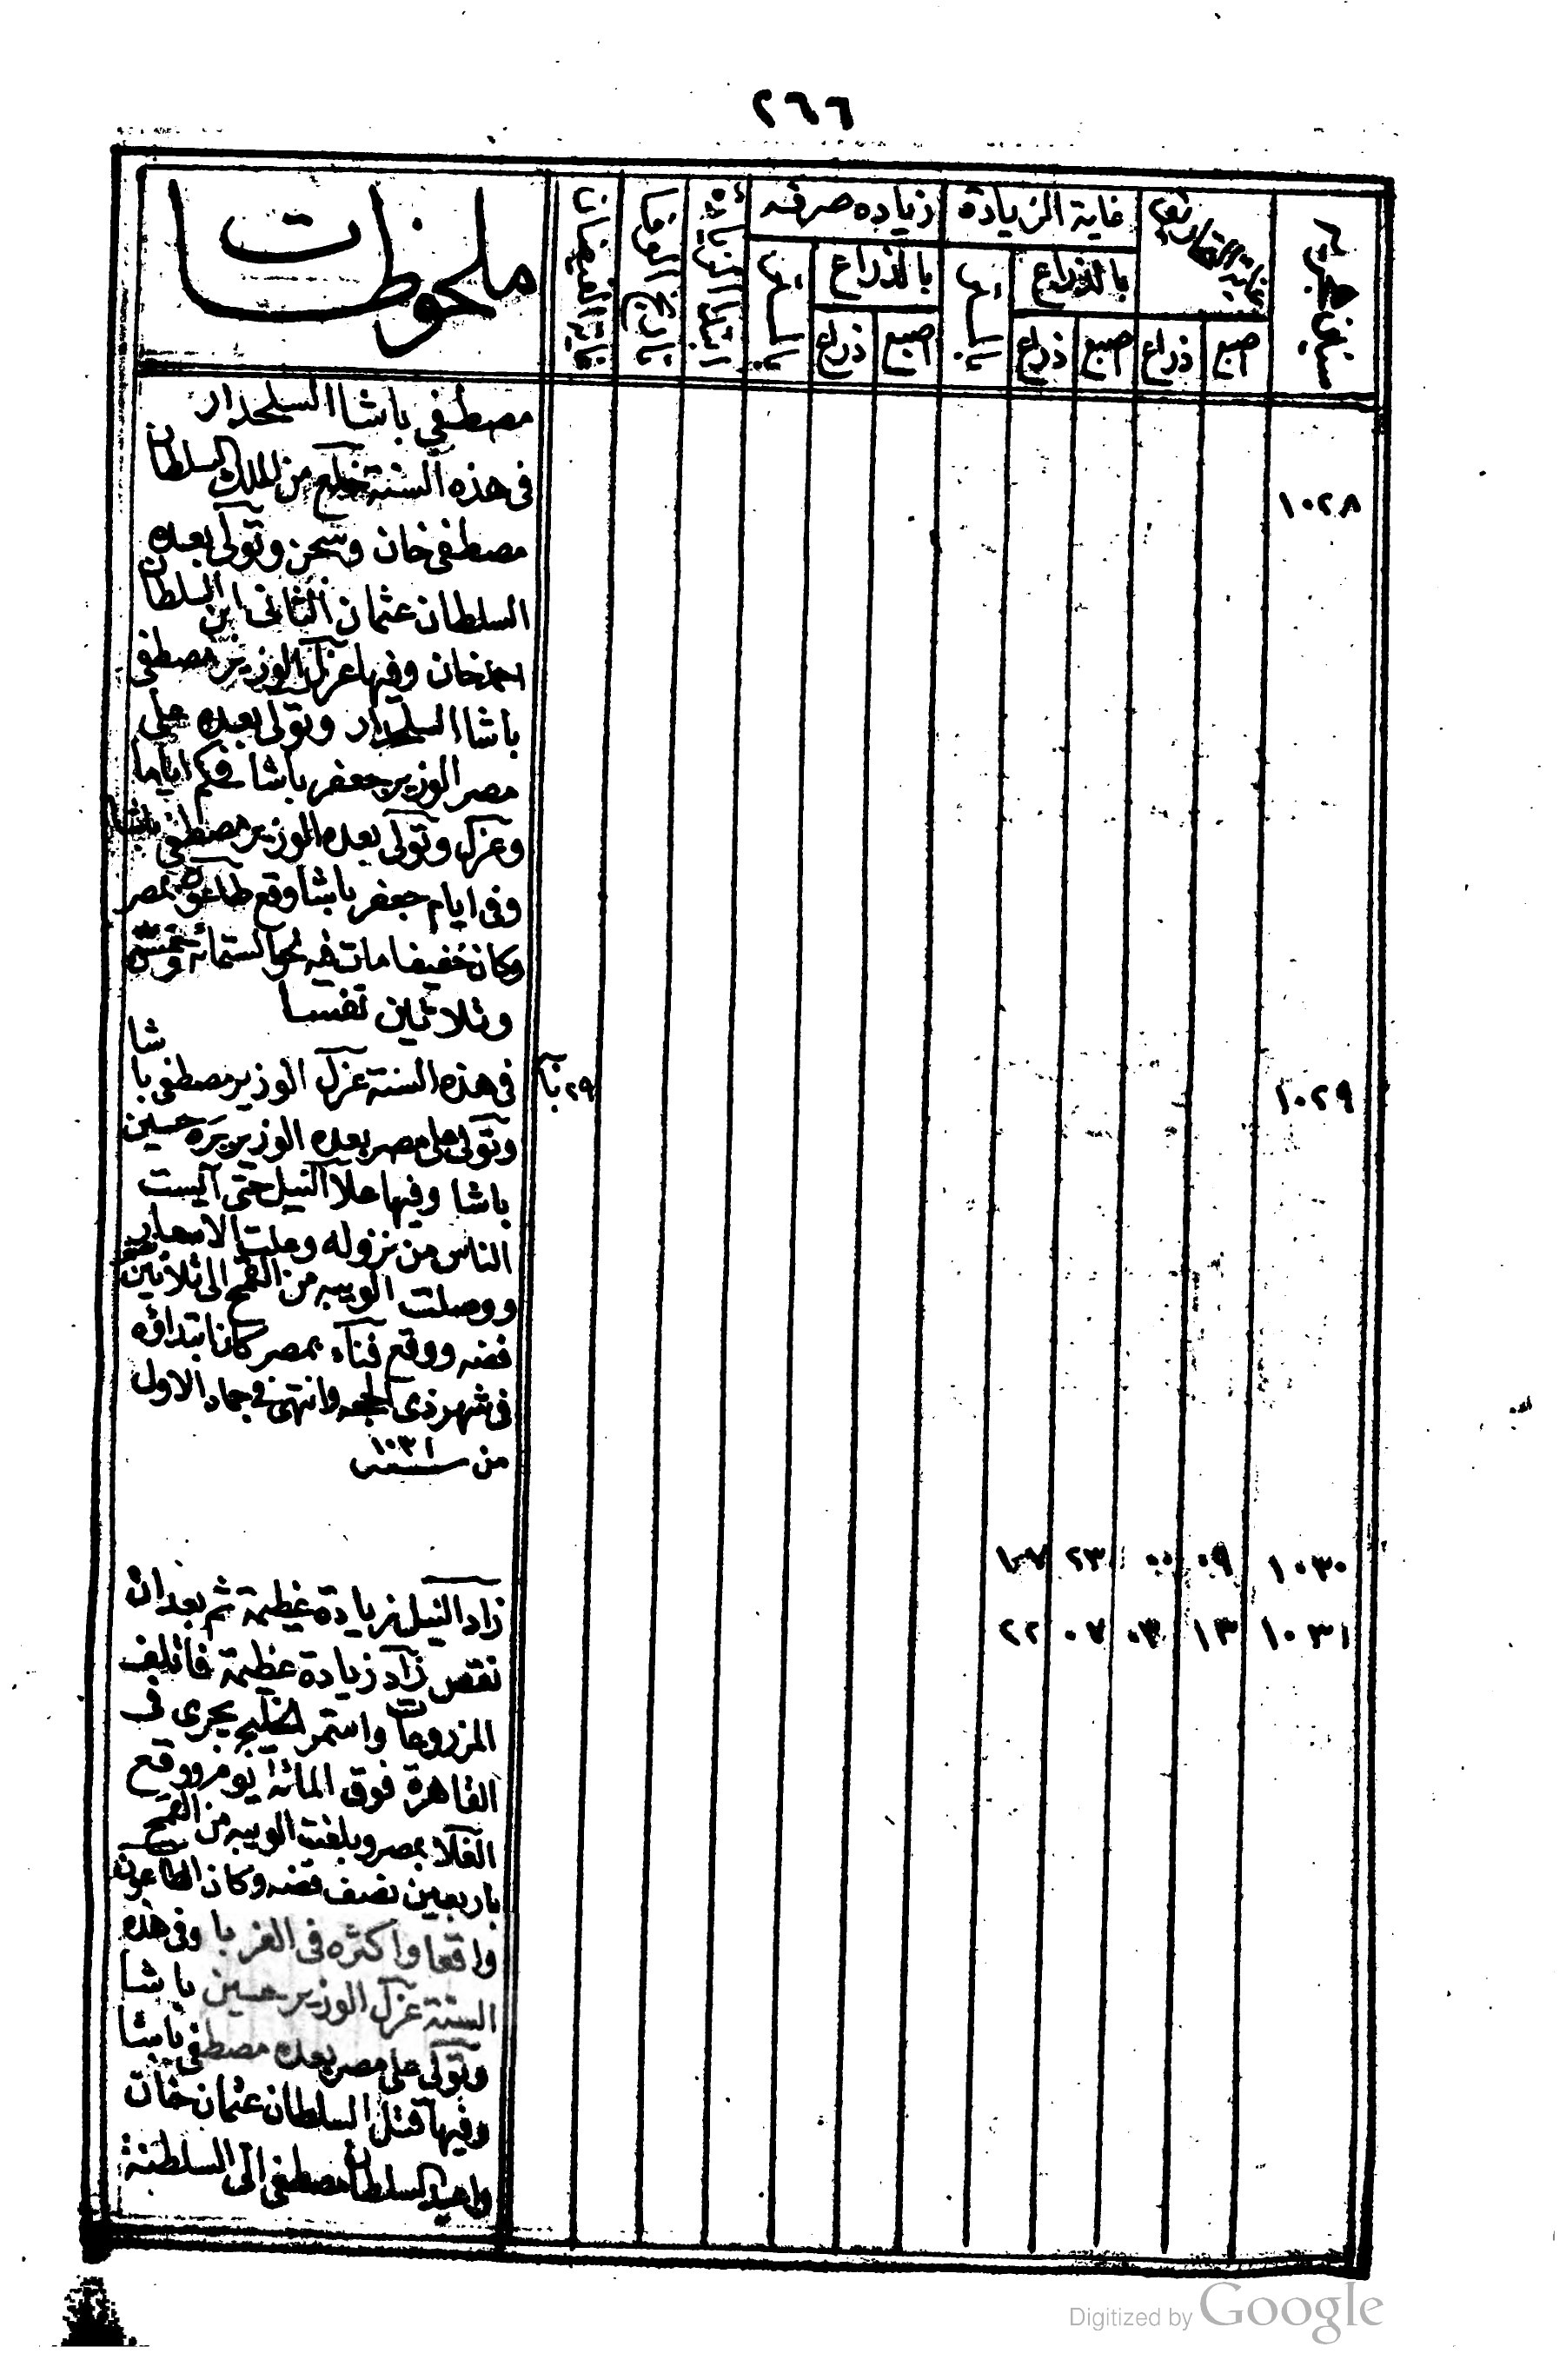 ٢٦٦
سنين هجرية
غاية التحاريق
اصبع
ذراع
غاية الزيادة
بالذراع
اصبع
ذراع
زيادة صرفه
بالذراع
اصبع
ذراع
ابتدا الزيادة
تاريخ الوفا
غاية الفيضان
ملحوظات
مصطفى باشا السلحدار
١٠٢٨
فى هذه السنة خلع من الملك السلطان
مصطفى خان وسجن وتولى بعده
السلطان عثمان الثانى ابن السلطان
احمد خان وفيها عزل الوزير مصطفى
باشا السلحدار وتولى بعده على
مصر الوزير جعفر باشا فحكم اياما
وعزل وتولى بعده الوزير مصطفى باشا
وفى ايام جعفر باشا وقع طاعون بمصر
وكان خفيفا مات فيه نحو الستمائة وخمسة
وثلاثين نفسا
١٠٢٩
٢٩
فى هذه السنة عزل الوزير مصطفى باشا
وتولى على مصر بعده الوزير بره حسين
باشا وفيها علا النيل حتى آيست
الناس من نزوله وعلت الاسعار
ووصلت الويبه من القمح الى ثلاثين نصف
فضه ووقع فناء بمصر كان ابتداؤه
فى شهر ذى الحجه وانتهى فى جماد الاول
من سنة ١٠٣١
١٠٣٠ ٠٩ ٠٠ ٢٣ ١٠٧
١٠٣١ ١٣ ٠٣ ٠٧ ٢٢
زاد النيل زيادة عظيمة ثم بعد ان
نقص زاد زيادة عظيمة فاتلف
المزروعات واستمر الخليج يجرى فى
القاهرة فوق المائة يوم ووقع
الغلا بمصر وبلغت الويبه من القمح
باربعين نصف فضه وكان الطاعون
واقعا واكثره فى الغربا وفى هذه
السنة عزل الوزير حسين باشا
وتولى على مصر بعده مصطفى باشا
وفيها قتل السلطان عثمان خان
واعيد السلطان مصطفى الى السلطنة
Digitized by Google